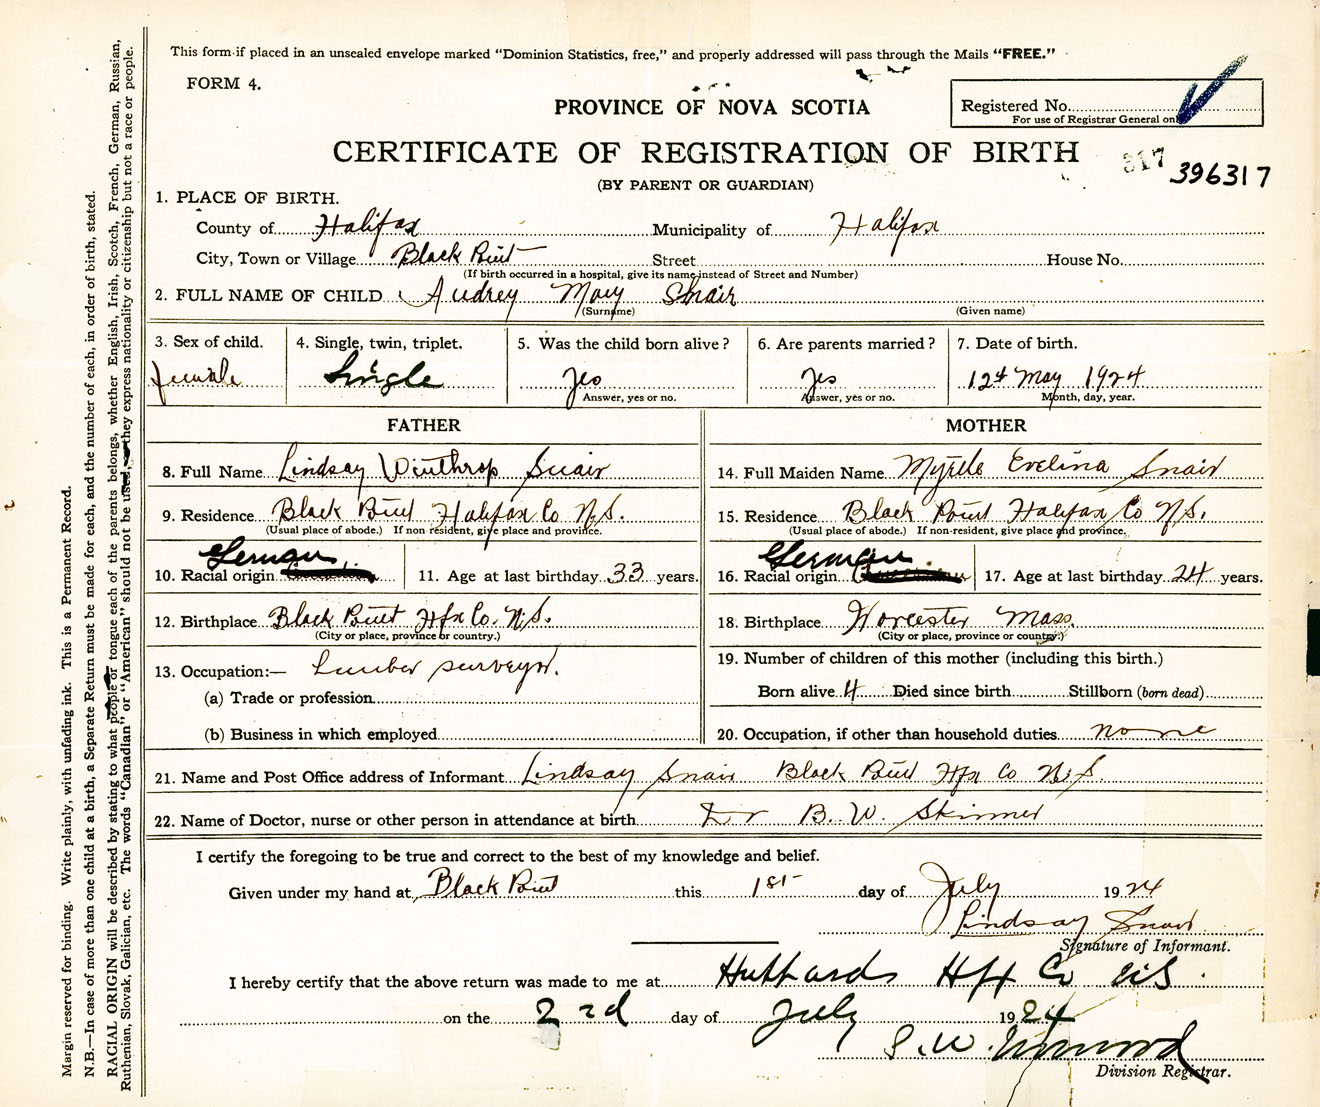 This form if placed in an unsealed envelope marked "Dominion Statistics, free," and properly addressed will pass through the Mails "FREE."
FORM 4.
PROVINCE OF NOVA SCOTIA
Registered No.
For use of Registrar General only
CERTIFICATE OF REGISTRATION OF BIRTH
317 396317
(BY PARENT OR GUARDIAN)
1. PLACE OF BIRTH.
County of Halifax Municipality of Halifax
City, Town or Village Black Point Street House No.
(If birth occurred in a hospital, give its name instead of Street and Number)
2. FULL NAME OF CHILD Audrey Mary Snair
(Surname) (Given name)
3. Sex of child. 4. Single, twin, triplet. 5. Was the child born alive? 6. Are parents married? 7. Date of birth.
female Single Yes Yes 12th May 1924
Answer, yes or no. Answer, yes or no. Month, day, year.
FATHER MOTHER
8. Full Name Lindsay Winthrop Snair 14. Full Maiden Name Myrtle Evelina Snair
9. Residence Black Point Halifax Co N.S. 15. Residence Black Point Halifax Co N.S.
(Usual place of abode.) If non resident, give place and province. (Usual place of abode.) If non-resident, give place and province.
German German
10. Racial origin 11. Age at last birthday 33 years. 16. Racial origin 17. Age at last birthday 24 years.
12. Birthplace Black Point Hfx Co. N.S. 18. Birthplace Worcester Mass.
(City or place, province or country.) (City or place, province or country.)
13. Occupation:— Lumber surveyor. 19. Number of children of this mother (including this birth.)
(a) Trade or profession Born alive 4 Died since birth Stillborn (born dead)
(b) Business in which employed 20. Occupation, if other than household duties none
21. Name and Post Office address of Informant Lindsay Snair Black Point Hfx Co N.S.
22. Name of Doctor, nurse or other person in attendance at birth Dr B. W. Skinner
I certify the foregoing to be true and correct to the best of my knowledge and belief.
Given under my hand at Black Point this 1st day of July 1924
Lindsay Snair
Signature of Informant.
I hereby certify that the above return was made to me at Hubbards Hfx Co N.S.
on the 2nd day of July 1924
S. W.
Division Registrar.
Margin reserved for binding. Write plainly, with unfading ink. This is a Permanent Record.
N.B.—In case of more than one child at a birth, a Separate Return must be made for each, and the number of each, in order of birth, stated.
RACIAL ORIGIN will be described by stating to what people or tongue each of the parents belongs, whether English, Irish, Scotch, French, German, Russian,
Ruthenian, Slovak, Galician, etc. The words "Canadian" or "American" should not be used, they express nationality or citizenship but not a race or people.